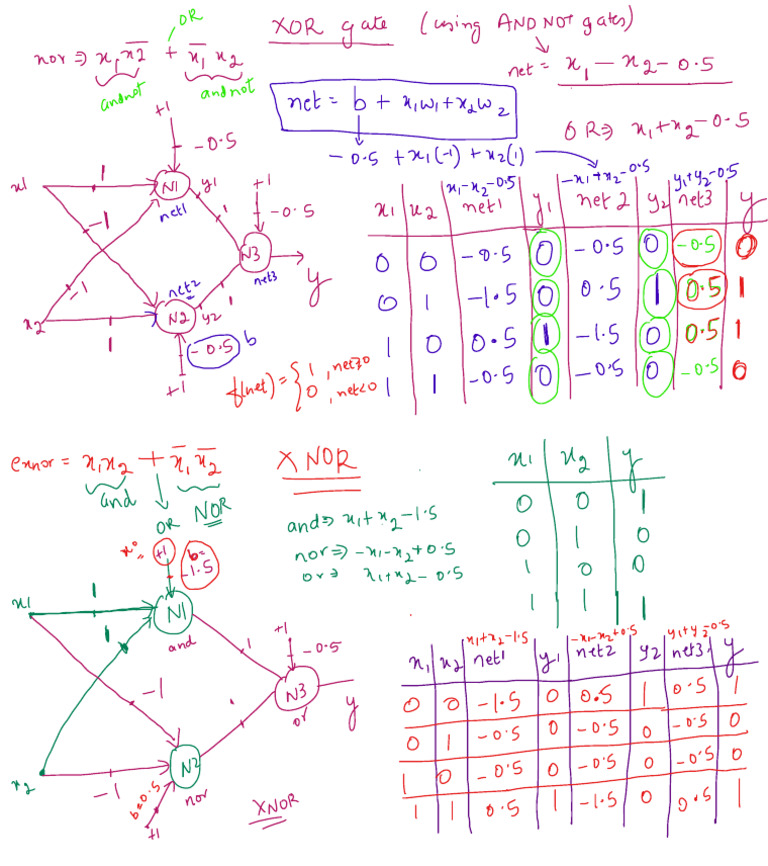 OR
XOR gate (using AND NOT gates)
nor ⇒ x₁x̅₂ + x̅₁ x₂
andnot andnot
net = x₁ − x₂ − 0.5
net = b + x₁w₁ + x₂w₂
OR ⇒ x₁ + x₂ − 0.5
−0.5 + x₁(−1) + x₂(1)
+1
−0.5
x1 1 N1 y₁
net1
−1
+1
−0.5
1
N3
net3
y
−1
net2
x₂ 1 N2 y₂ 1
−0.5 b
+1
f(net) = { 1, net≥0
0, net<0
x₁−x₂−0.5 −x₁+x₂−0.5 y₁+y₂−0.5
x₁ x₂ net1 y₁ net2 y₂ net3 y
0 0 −0.5 0 −0.5 0 −0.5 0
0 1 −1.5 0 0.5 1 0.5 1
1 0 0.5 1 −1.5 0 0.5 1
1 1 −0.5 0 −0.5 0 −0.5 0
exnor = x₁x₂ + x̅₁ x̅₂
XNOR
and OR NOR
and ⇒ x₁ + x₂ − 1.5
nor ⇒ −x₁ − x₂ + 0.5
or ⇒ x₁ + x₂ − 0.5
x₁ x₂ y
0 0 1
0 1 0
1 0 0
1 1 1
+1 b= −1.5
x1 1 N1
1 and
1
+1
−0.5
−1
N3
or
y
x₂ −1 N2
nor
b=0.5
+1
XNOR
x₁+x₂−1.5 −x₁−x₂+0.5 y₁+y₂−0.5
x₁ x₂ net1 y₁ net2 y₂ net3 y
0 0 −1.5 0 0.5 1 0.5 1
0 1 −0.5 0 −0.5 0 −0.5 0
1 0 −0.5 0 −0.5 0 −0.5 0
1 1 0.5 1 −1.5 0 0.5 1